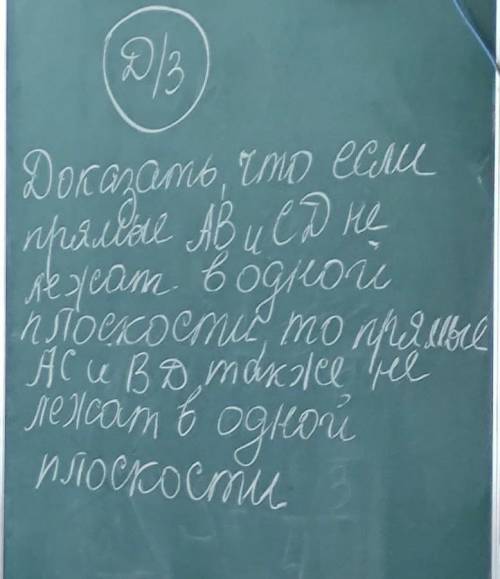 Д/З
Доказать, что если
прямые AB и CD не
лежат в одной
плоскости, то прямые
AC и BD также не
лежат в одной
плоскости